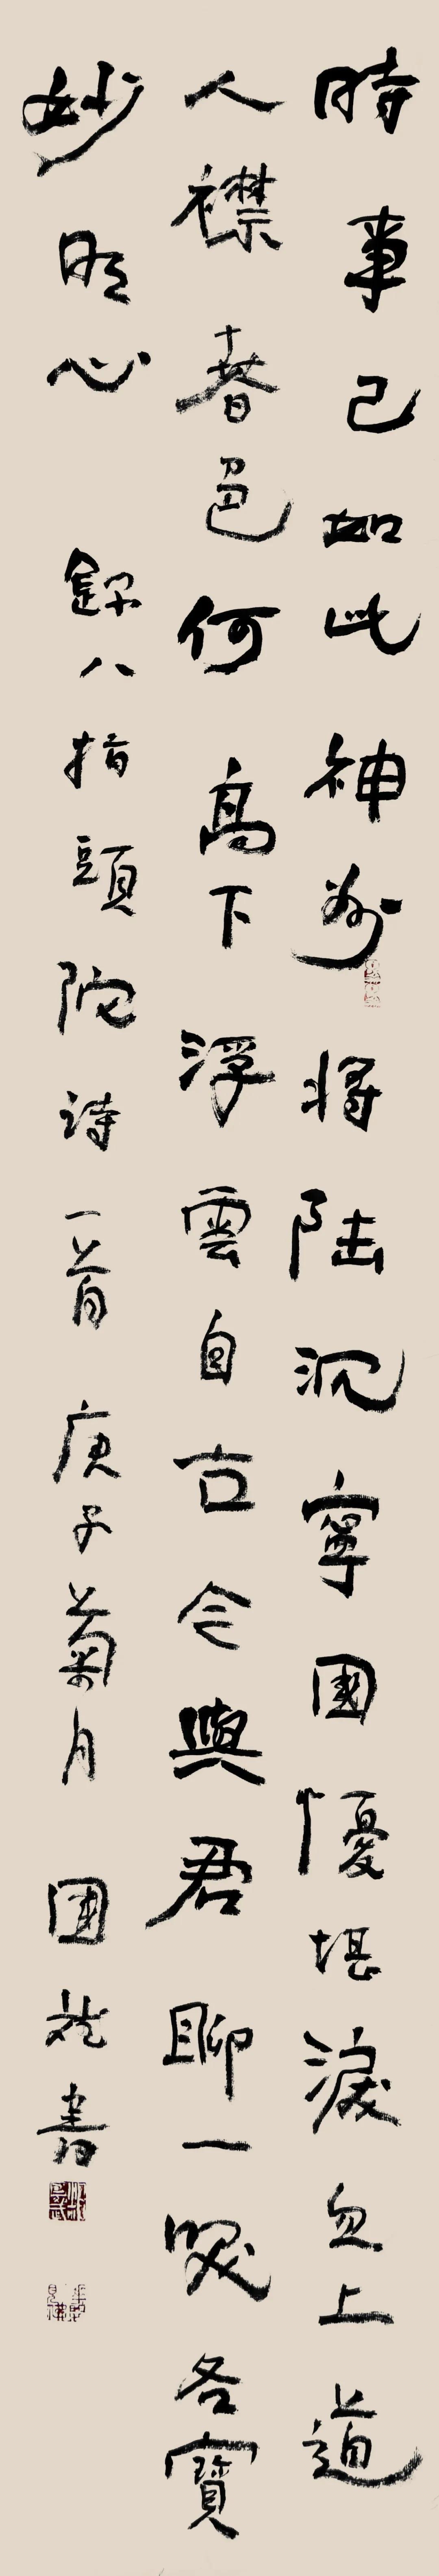 時事已如此神州將陸沉寧國憂堪淚忽上道
人襟春色何高下浮雲自古今與君聊一笑各寶
妙明心 錄八指頭陀詩一首 庚子菊月 國龍書